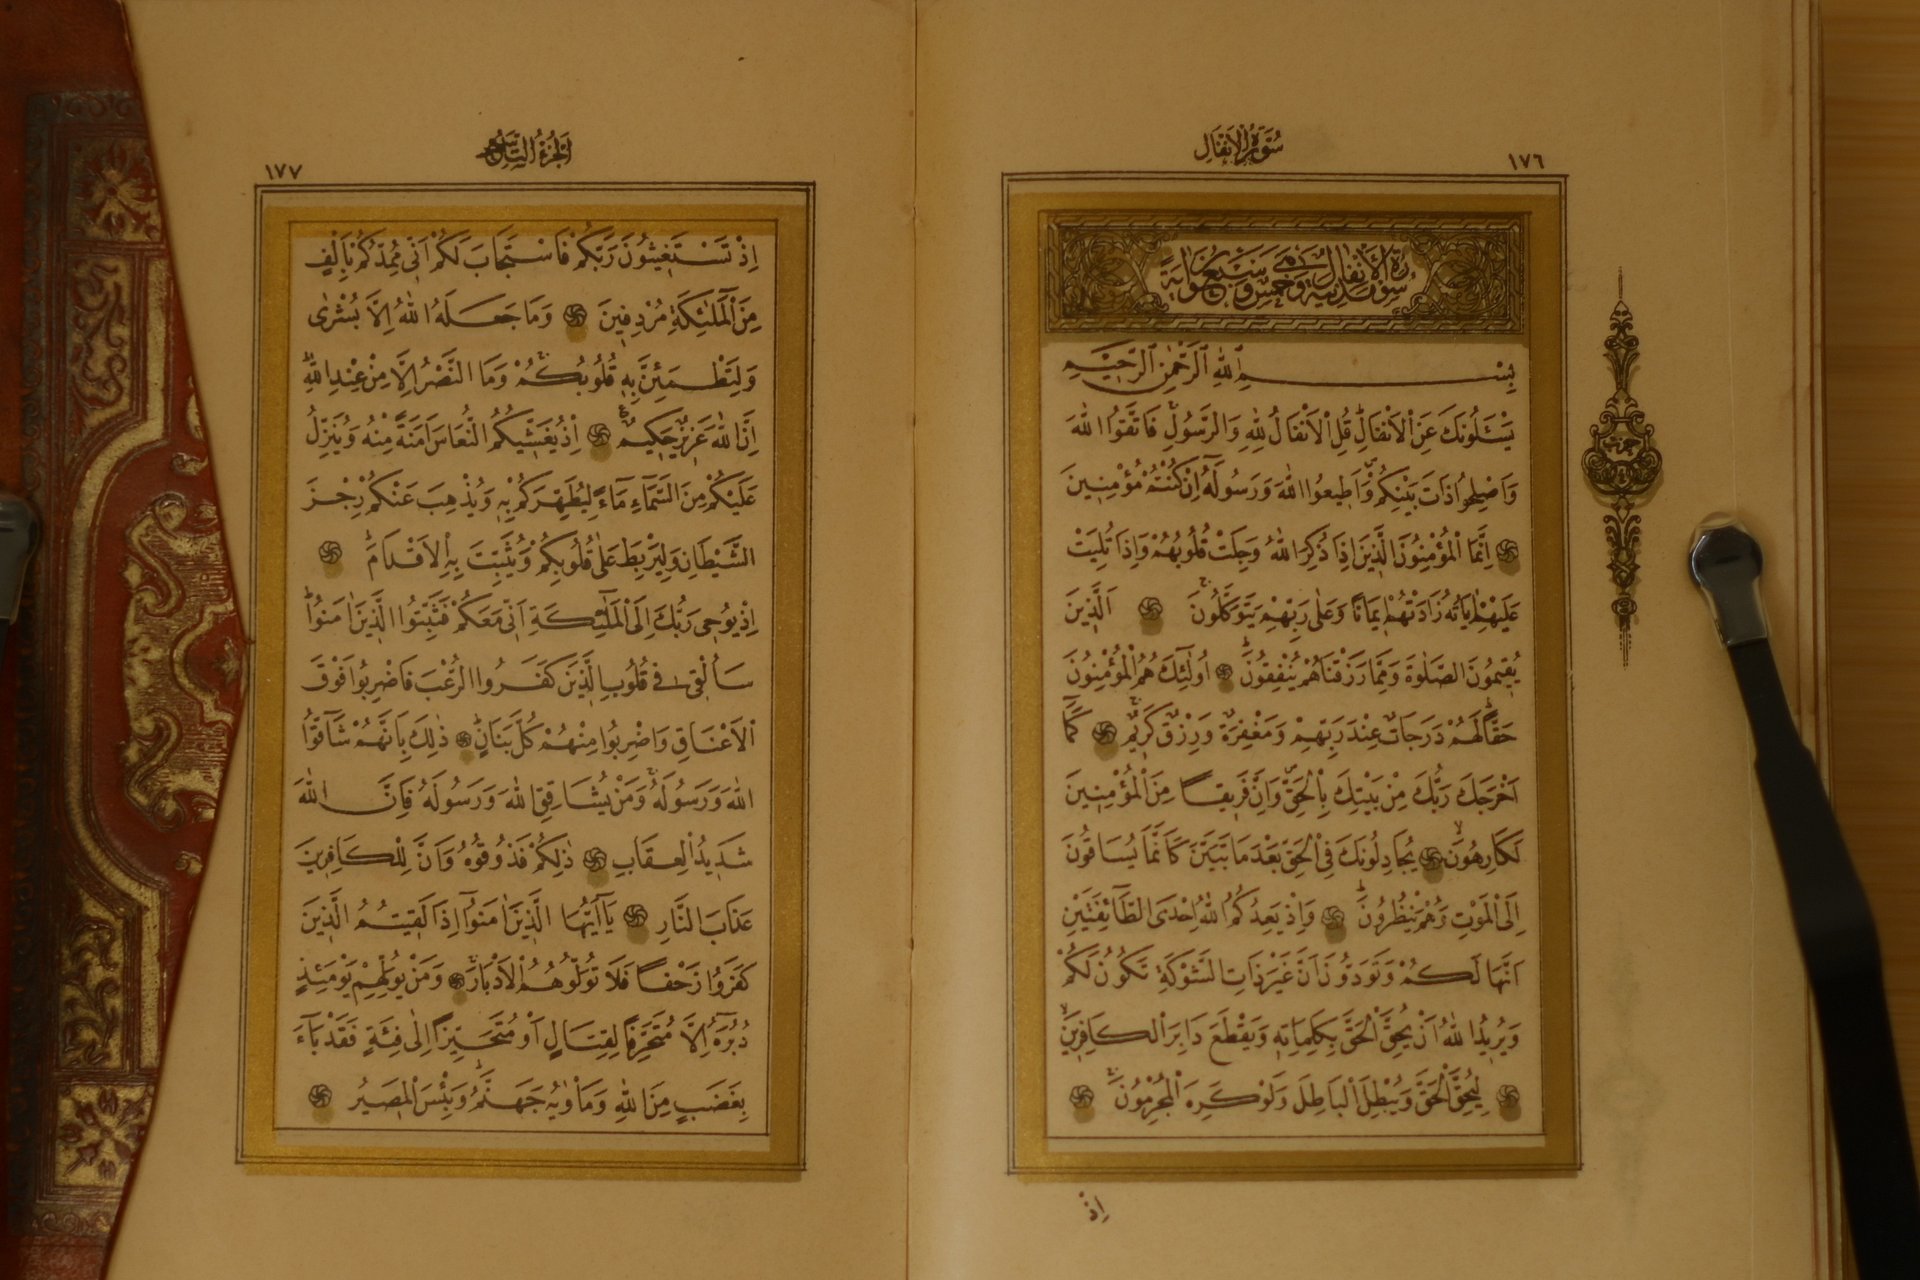 ١٧٦
سُورَةُ الْاَنْفَالِ
سورة الانفال مدنية وهى خمس وسبعون اية
حزب
بِسْمِ اللّٰهِ الرَّحْمٰنِ الرَّحٖيمِ
يَسْـَٔلُونَكَ عَنِ الْاَنْفَالِ قُلِ الْاَنْفَالُ لِلّٰهِ وَالرَّسُولِ فَاتَّقُوا اللّٰهَ
وَاَصْلِحُوا ذَاتَ بَيْنِكُمْ وَاَطٖيعُوا اللّٰهَ وَرَسُولَهُٓ اِنْ كُنْتُمْ مُؤْمِنٖينَ
اِنَّمَا الْمُؤْمِنُونَ الَّذٖينَ اِذَا ذُكِرَ اللّٰهُ وَجِلَتْ قُلُوبُهُمْ وَاِذَا تُلِيَتْ
عَلَيْهِمْ اٰيَاتُهُ زَادَتْهُمْ اٖيمَانًا وَعَلٰى رَبِّهِمْ يَتَوَكَّلُونَ اَلَّذٖينَ
يُقٖيمُونَ الصَّلٰوةَ وَمِمَّا رَزَقْنَاهُمْ يُنْفِقُونَ اُولٰٓئِكَ هُمُ الْمُؤْمِنُونَ
حَقًّا لَهُمْ دَرَجَاتٌ عِنْدَ رَبِّهِمْ وَمَغْفِرَةٌ وَرِزْقٌ كَرٖيمٌ كَمَٓا
اَخْرَجَكَ رَبُّكَ مِنْ بَيْتِكَ بِالْحَقِّ وَاِنَّ فَرٖيقًا مِنَ الْمُؤْمِنٖينَ
لَكَارِهُونَ يُجَادِلُونَكَ فِى الْحَقِّ بَعْدَ مَا تَبَيَّنَ كَاَنَّمَا يُسَاقُونَ
اِلَى الْمَوْتِ وَهُمْ يَنْظُرُونَ وَاِذْ يَعِدُكُمُ اللّٰهُ اِحْدَى الطَّٓائِفَتَيْنِ
اَنَّهَا لَكُمْ وَتَوَدُّونَ اَنَّ غَيْرَ ذَاتِ الشَّوْكَةِ تَكُونُ لَكُمْ
وَيُرٖيدُ اللّٰهُ اَنْ يُحِقَّ الْحَقَّ بِكَلِمَاتِهٖ وَيَقْطَعَ دَابِرَ الْكَافِرٖينَ
لِيُحِقَّ الْحَقَّ وَيُبْطِلَ الْبَاطِلَ وَلَوْ كَرِهَ الْمُجْرِمُونَ
اِذْ
١٧٧
اَلْجُزْءُ التَّاسِعُ
اِذْ تَسْتَغٖيثُونَ رَبَّكُمْ فَاسْتَجَابَ لَكُمْ اَنّٖى مُمِدُّكُمْ بِاَلْفٍ
مِنَ الْمَلٰٓئِكَةِ مُرْدِفٖينَ وَمَا جَعَلَهُ اللّٰهُ اِلَّا بُشْرٰى
وَلِتَطْمَئِنَّ بِهٖ قُلُوبُكُمْ وَمَا النَّصْرُ اِلَّا مِنْ عِنْدِ اللّٰهِ
اِنَّ اللّٰهَ عَزٖيزٌ حَكٖيمٌ اِذْ يُغَشّٖيكُمُ النُّعَاسَ اَمَنَةً مِنْهُ وَيُنَزِّلُ
عَلَيْكُمْ مِنَ السَّمَٓاءِ مَٓاءً لِيُطَهِّرَكُمْ بِهٖ وَيُذْهِبَ عَنْكُمْ رِجْزَ
الشَّيْطَانِ وَلِيَرْبِطَ عَلٰى قُلُوبِكُمْ وَيُثَبِّتَ بِهِ الْاَقْدَامَ
اِذْ يُوحٖى رَبُّكَ اِلَى الْمَلٰٓئِكَةِ اَنّٖى مَعَكُمْ فَثَبِّتُوا الَّذٖينَ اٰمَنُوا
سَاُلْقٖى فٖى قُلُوبِ الَّذٖينَ كَفَرُوا الرُّعْبَ فَاضْرِبُوا فَوْقَ
الْاَعْنَاقِ وَاضْرِبُوا مِنْهُمْ كُلَّ بَنَانٍ ذٰلِكَ بِاَنَّهُمْ شَٓاقُّوا
اللّٰهَ وَرَسُولَهُ وَمَنْ يُشَاقِقِ اللّٰهَ وَرَسُولَهُ فَاِنَّ اللّٰهَ
شَدٖيدُ الْعِقَابِ ذٰلِكُمْ فَذُوقُوهُ وَاَنَّ لِلْكَافِرٖينَ
عَذَابَ النَّارِ يَٓا اَيُّهَا الَّذٖينَ اٰمَنُٓوا اِذَا لَقٖيتُمُ الَّذٖينَ
كَفَرُوا زَحْفًا فَلَا تُوَلُّوهُمُ الْاَدْبَارَ وَمَنْ يُوَلِّهِمْ يَوْمَئِذٍ
دُبُرَهُٓ اِلَّا مُتَحَرِّفًا لِقِتَالٍ اَوْ مُتَحَيِّزًا اِلٰى فِئَةٍ فَقَدْ بَٓاءَ
بِغَضَبٍ مِنَ اللّٰهِ وَمَاْوٰيهُ جَهَنَّمُ وَبِئْسَ الْمَصٖيرُ